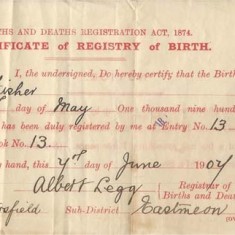 THS AND DEATHS REGISTRATION ACT, 1874.
TIFICATE OF REGISTRY OF BIRTH.
I, the undersigned, Do hereby certify that the Birth
isher
day of May One thousand nine hundred
has been duly registered by me at Entry No. 13
ook No. 13.
hand, this 7th day of June 1907
Albert Legg Registrar of
Births and Deaths
rsfield Sub-District Eastmeon